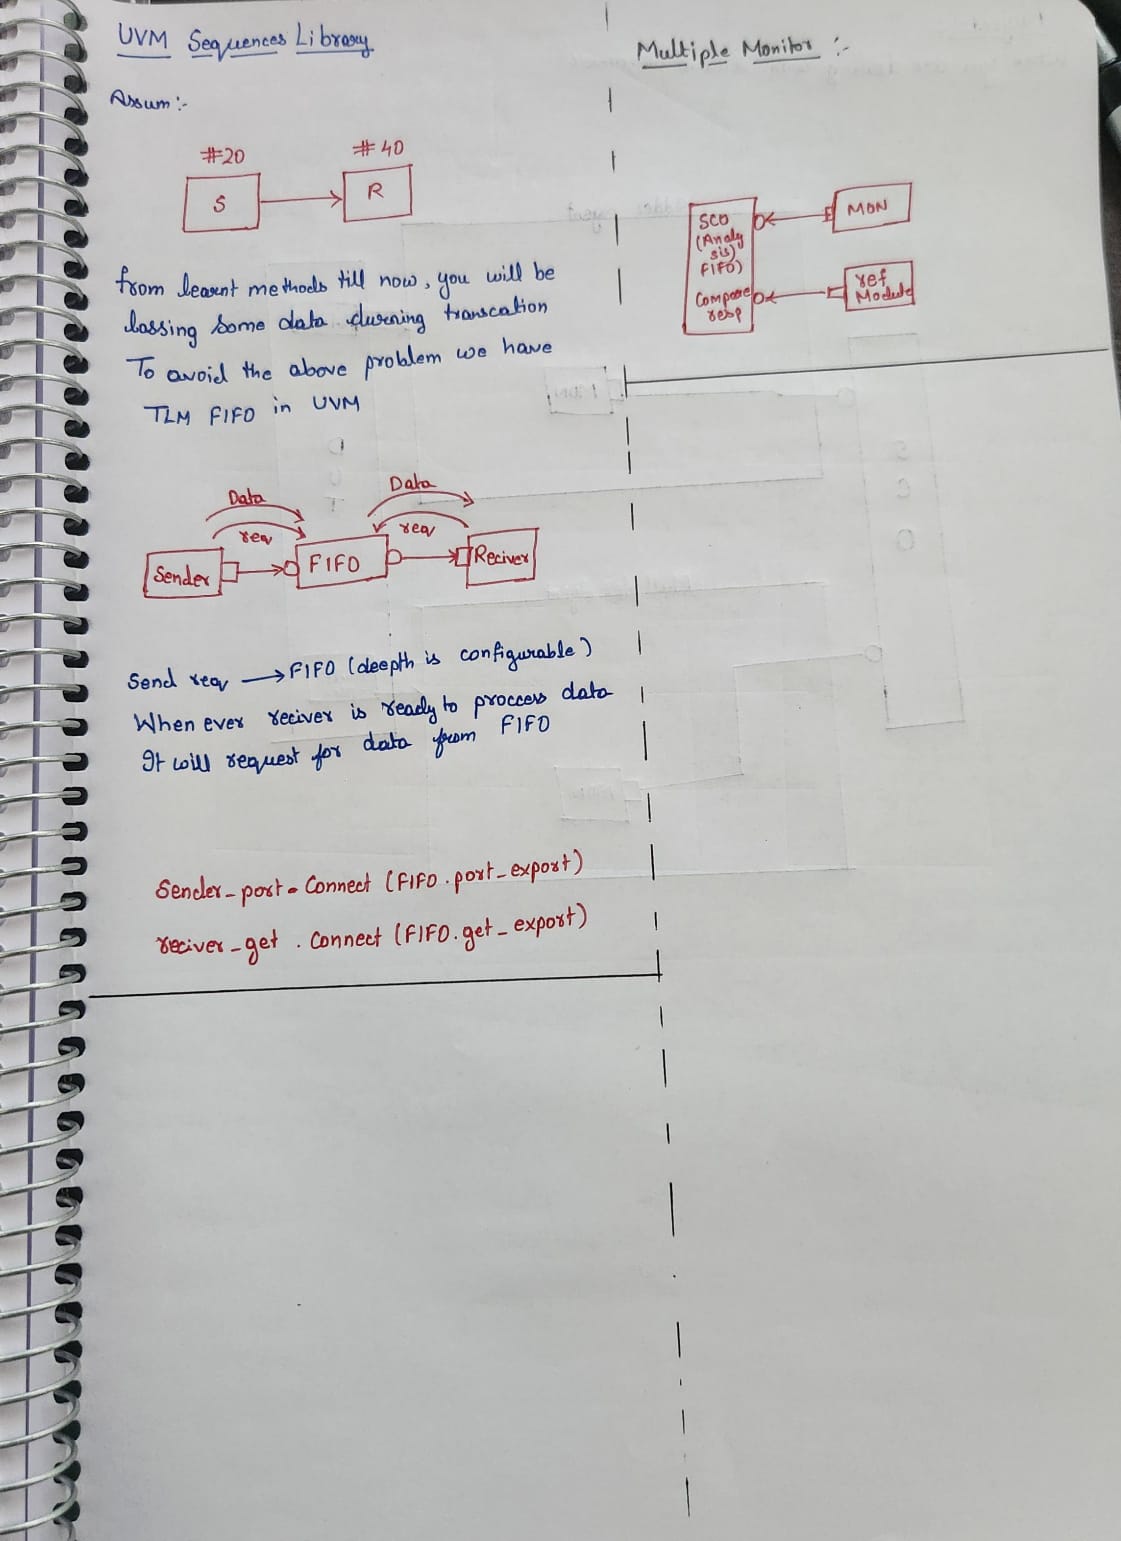 UVM Sequences Library
Assum :-
#20
#40
S
R
from learnt methods till now, you will be
lossing some data durning transcation
To avoid the above problem we have
TLM FIFO in UVM
Data
Data
req
req
Sender
FIFO
Reciver
Send req → FIFO (deepth is configurable)
When ever reciver is ready to proccess data
It will request for data from FIFO
Sender_port . Connect (FIFO . port_export)
reciver_get . Connect (FIFO. get_export)
Multiple Monitor :-
SCO
(Analy
sis)
FIFO)
Compare
resp
MON
ref
Module